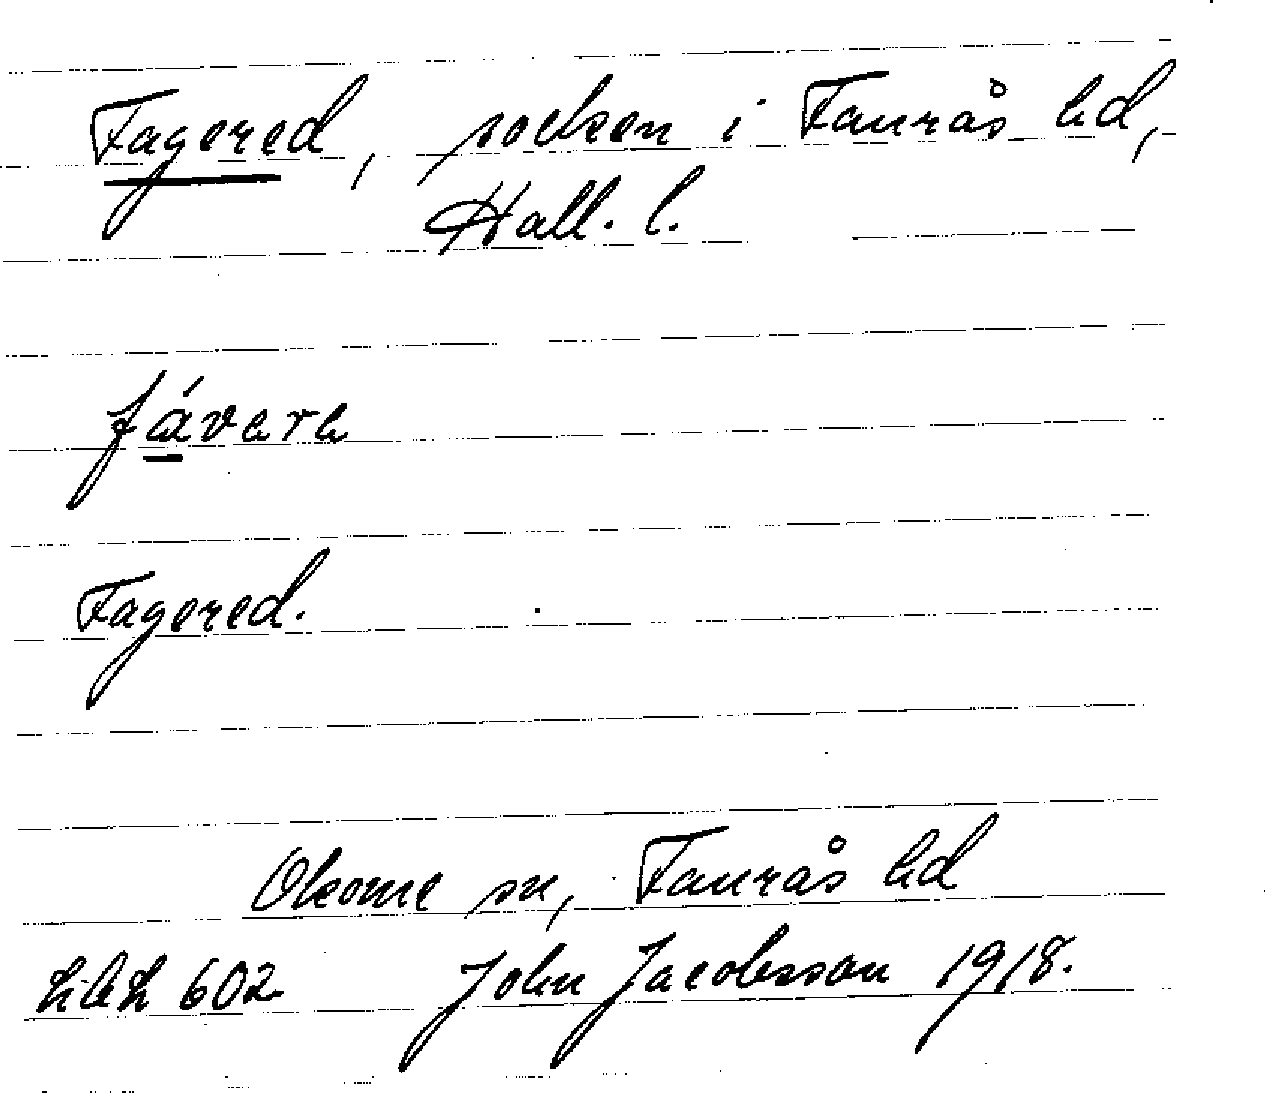 Fagered, socken i Faurås hd,
Hall. l.
fávara
Fagered.
Okome sn, Faurås hd
602 John Jacobsson 1918.